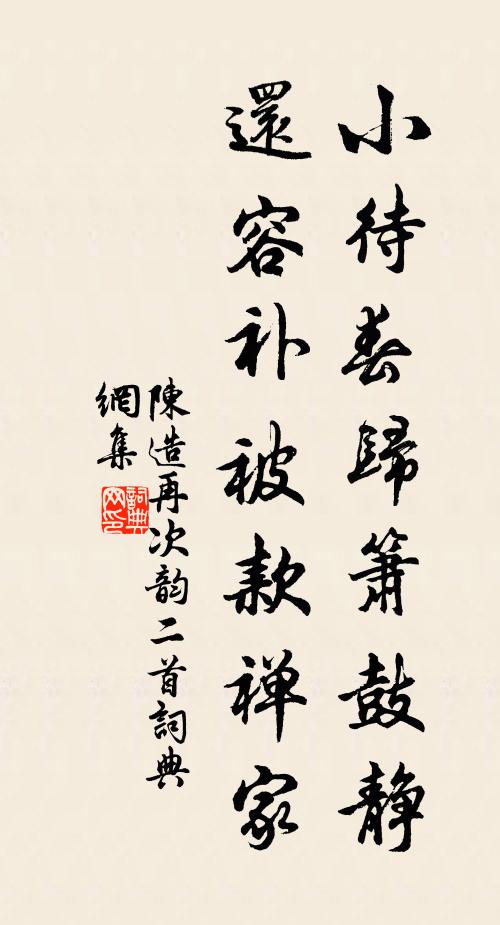 小待春歸簫鼓静
還容补被款禅家
陳造再次韵二首詞典
網集
詞典
网印